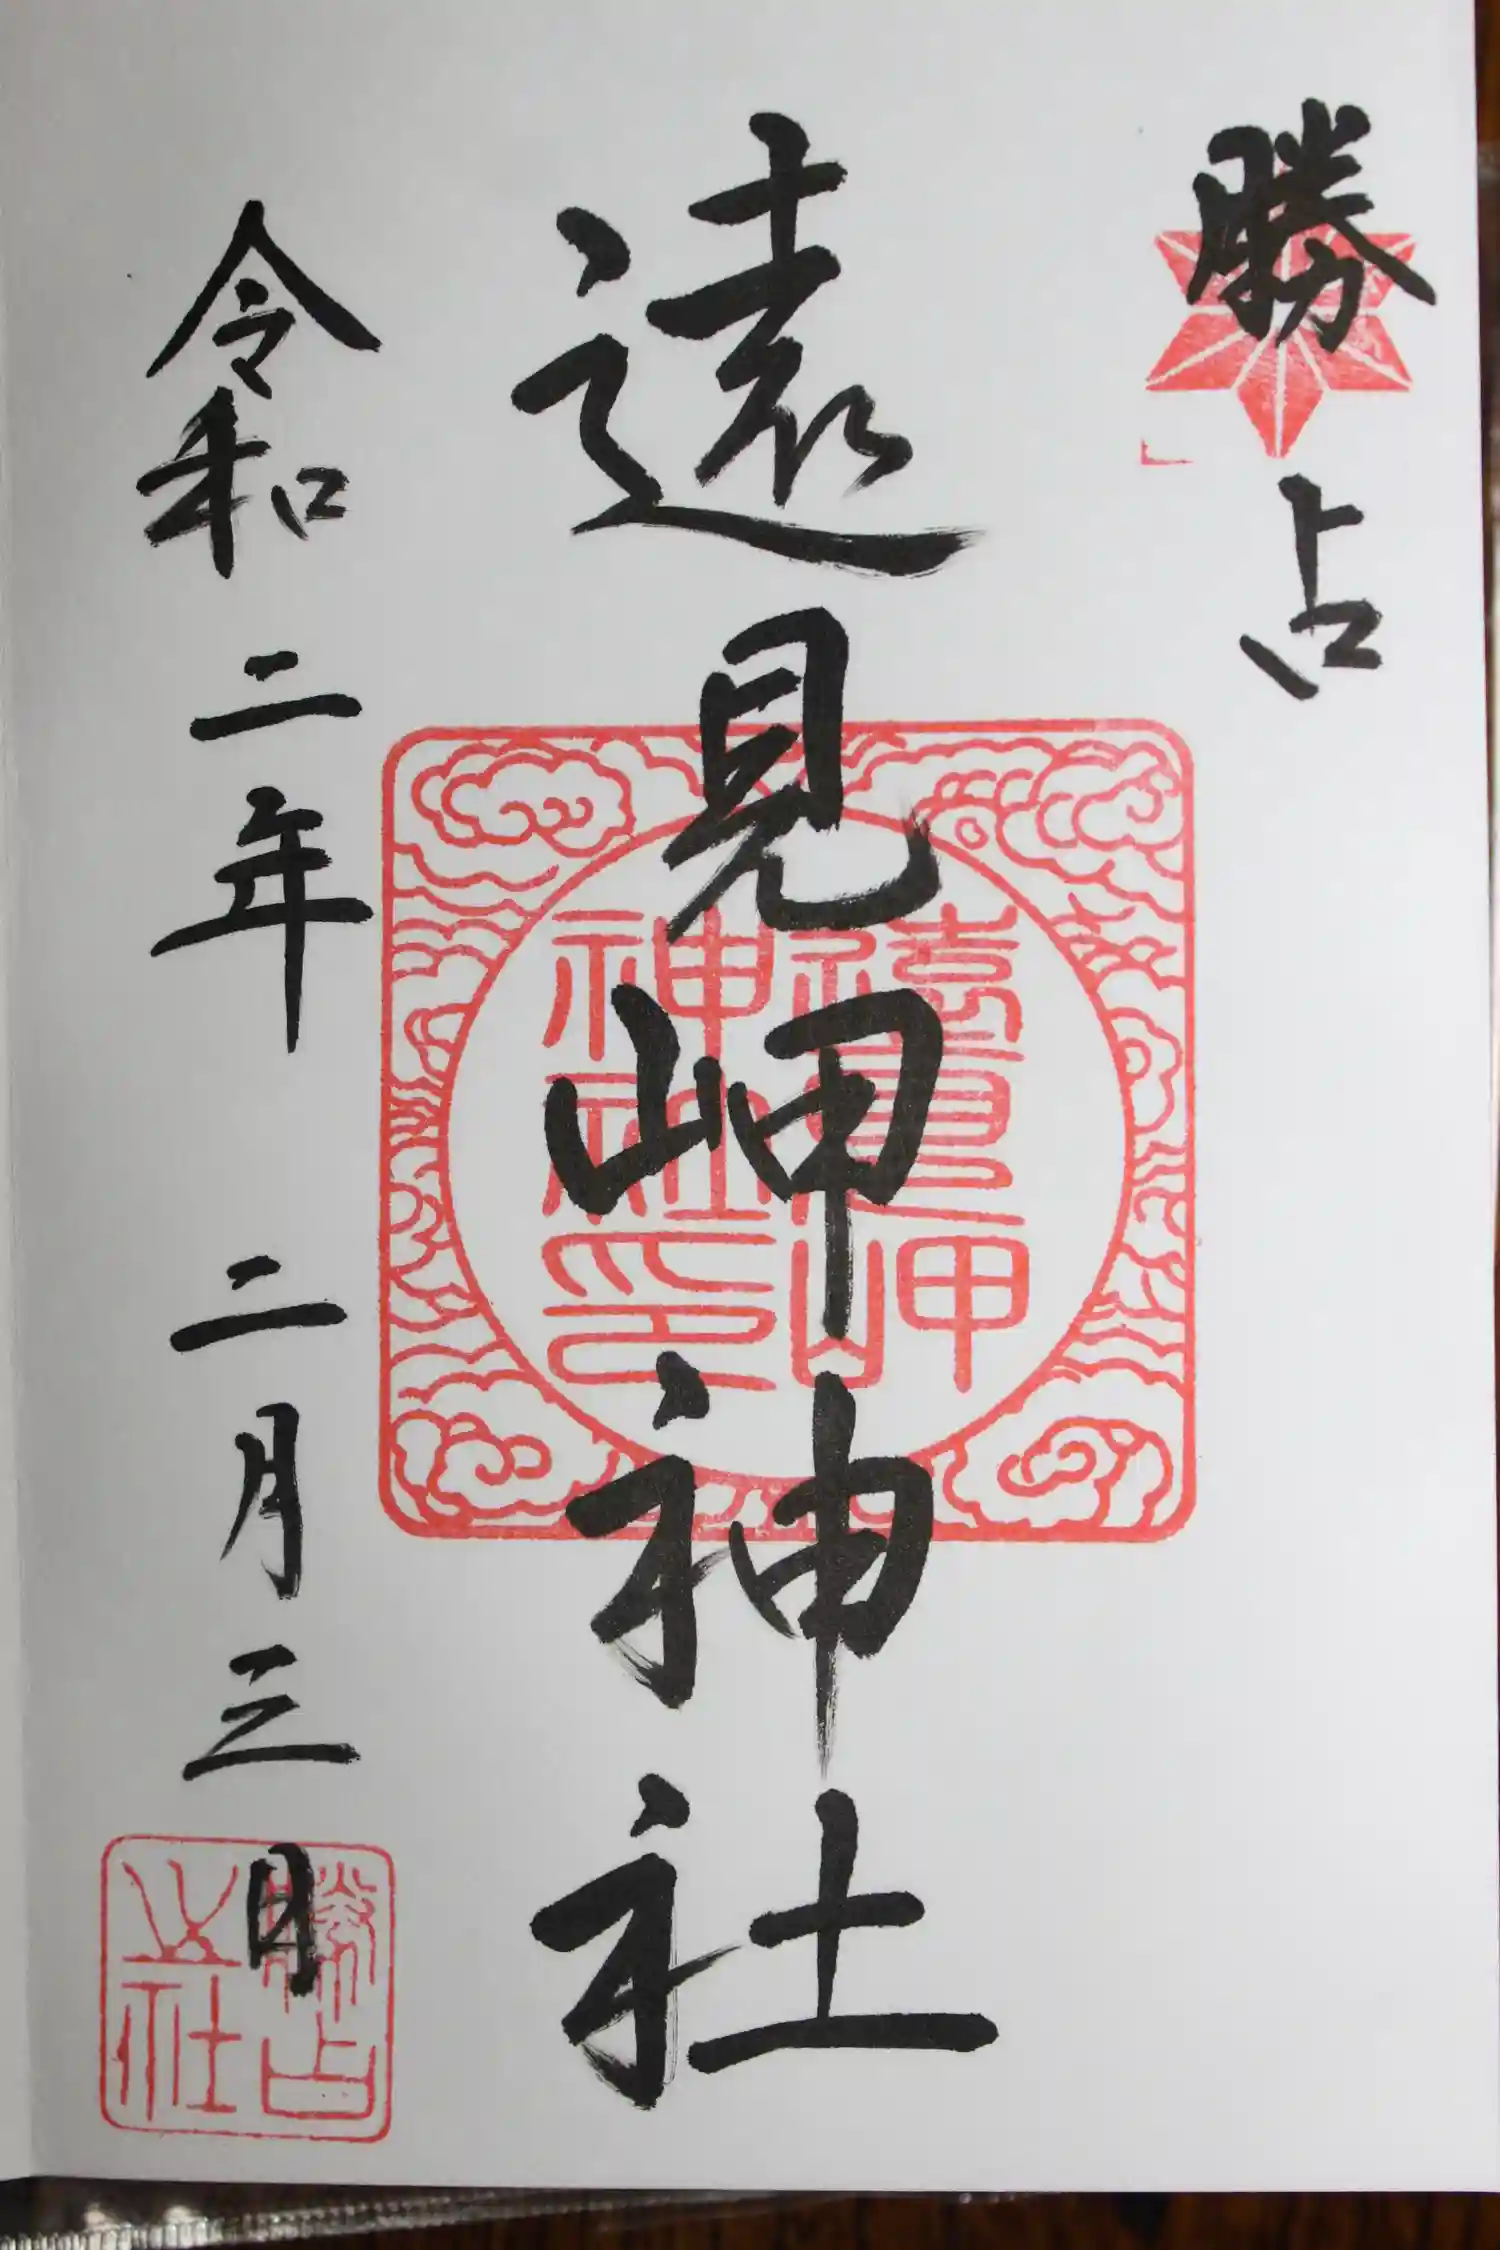 勝占
遠見岬神社
令和二年二月三日
遠見岬
神社印
勝占
之社